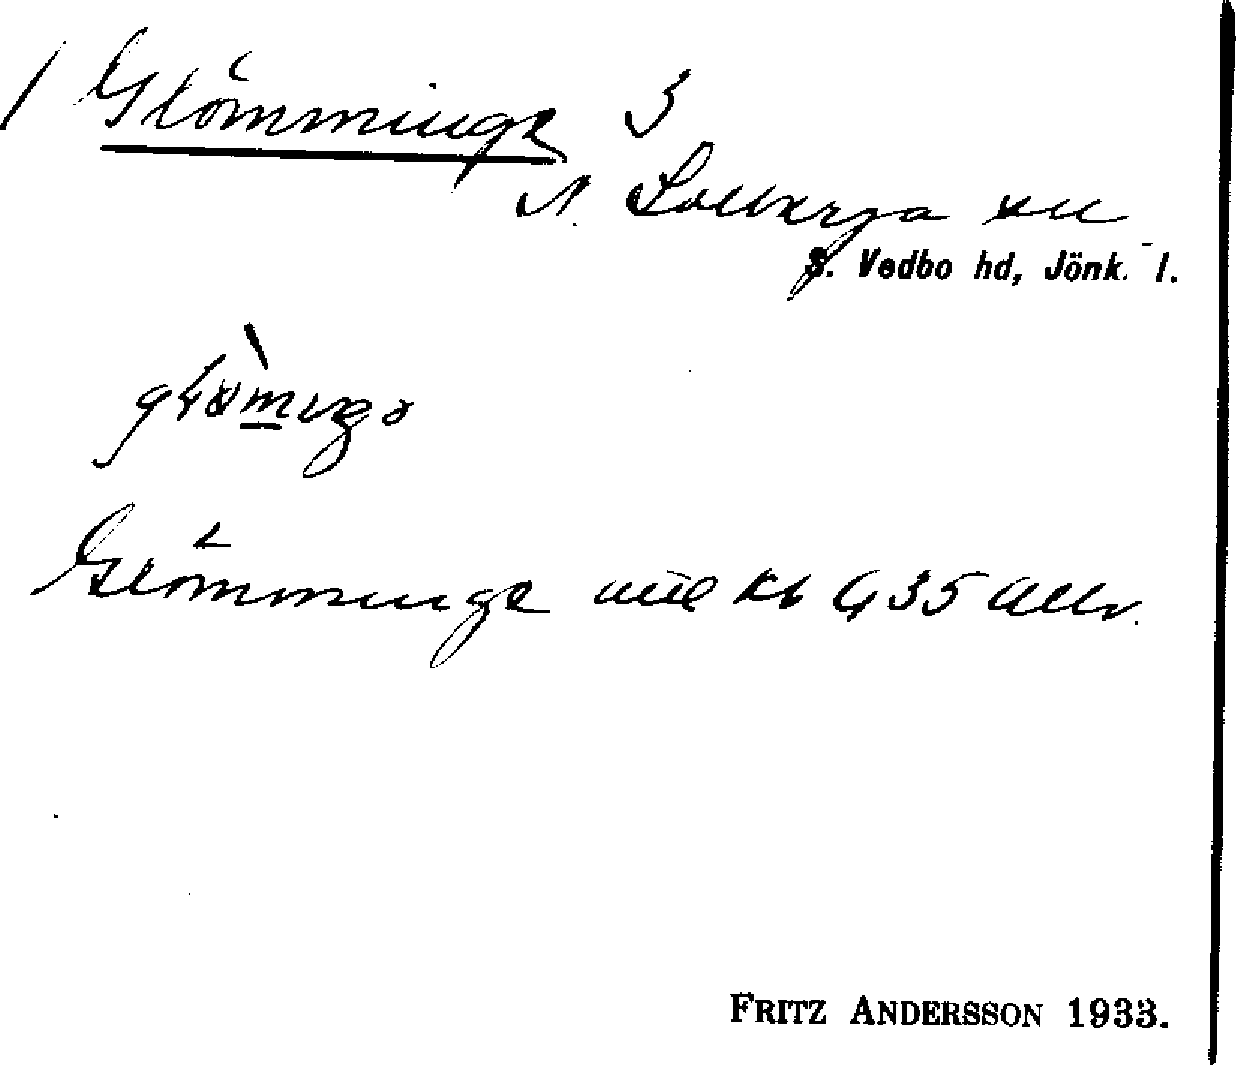 / Glömminge 3
N. Solberga sn
S. Vedbo hd, Jönk. l.
Glömminge kb G 35 Allv.
FRITZ ANDERSSON 1933.